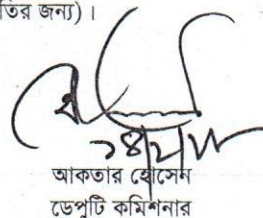 তির জন্য)।
আকতার হোসেন
ডেপুটি কমিশনার